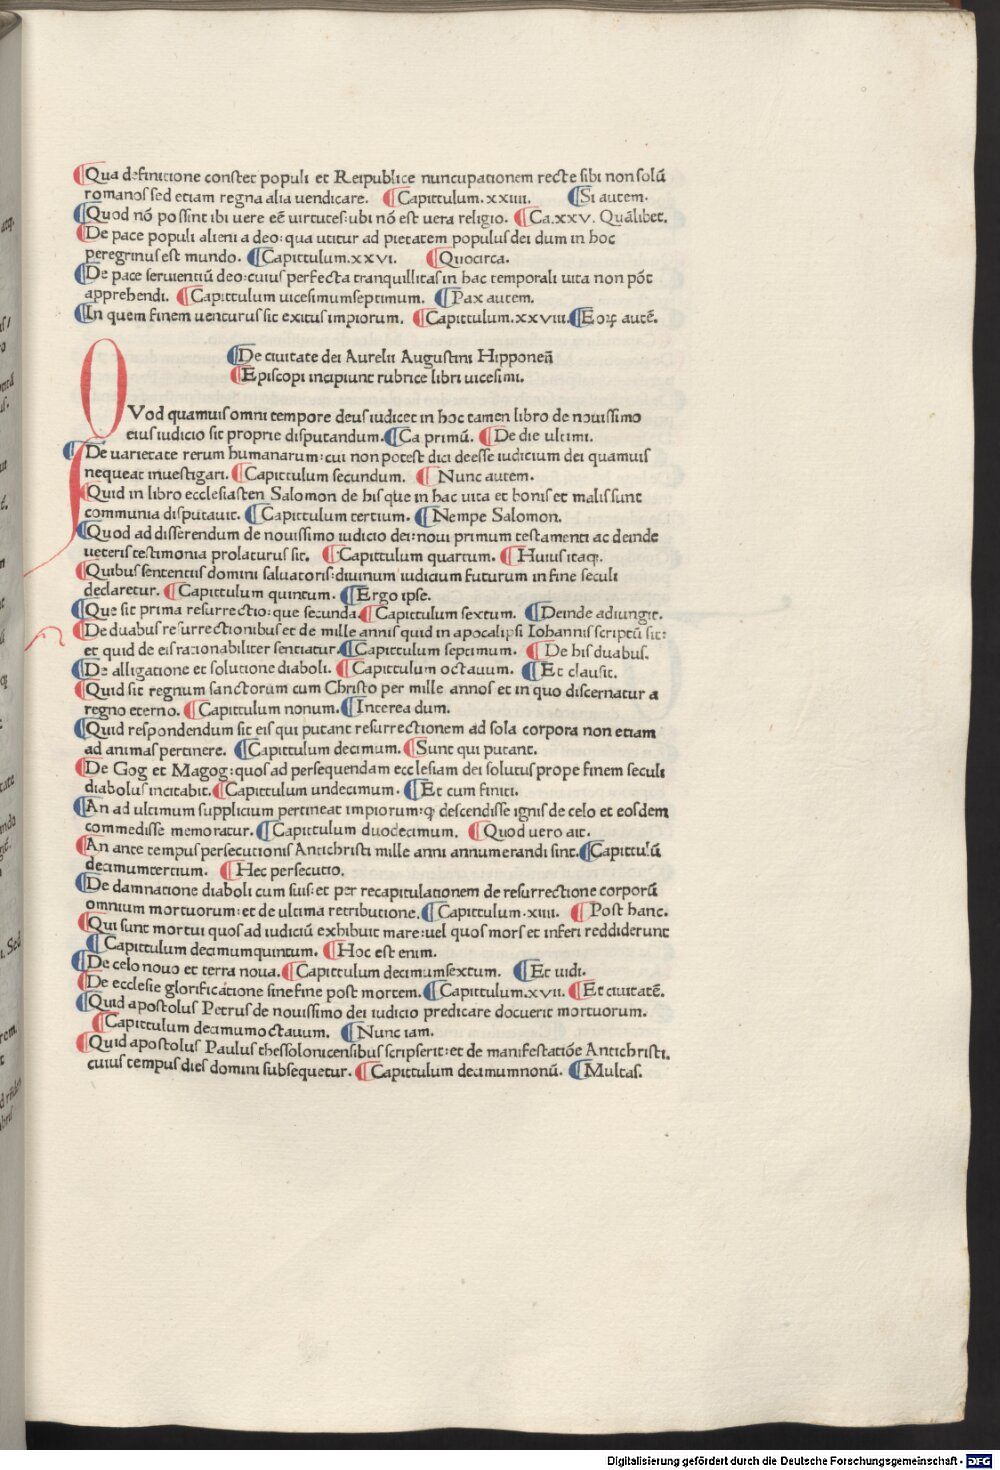 ¶Qua definitione constet populi et Reipublice nuncupationem recte sibi non solū
romanos sed etiam regna alia uendicare. ¶Capittulum.xxiiii. ¶Si autem.
¶Quod nō possint ibi uere eē uirtutes: ubi nō est uera religio. ¶Ca.xxv. Quālibet.
¶De pace populi alieni a deo: qua utitur ad pietatem populus dei dum in hoc
peregrinus est mundo. ¶Capittulum.xxvi. ¶Quocirca.
¶De pace seruientiū deo: cuius perfecta tranquillitas in hac temporali uita non pōt
apprehendi. ¶Capittulum uicesimumseptimum. ¶Pax autem.
¶In quem finem uenturus sit exitus impiorum. ¶Capittulum.xxviii. ¶Eoꝝ autē.
¶De ciuitate dei Aurelii Augustini Hipponeñ
¶Episcopi incipiunt rubrice libri uicesimi.
QVod quamuis omni tempore deus iudicet in hoc tamen libro de nouissimo
eius iudicio sit proprie disputandum. ¶Ca primū. ¶De die ultimi.
¶De uarietate rerum humanarum: cui non potest dici deesse iudicium dei quamuis
nequeat inuestigari. ¶Capittulum secundum. ¶Nunc autem.
¶Quid in libro ecclesiasten Salomon de his que in hac uita et bonis et malis sunt
communia disputauit. ¶Capittulum tertium. ¶Nempe Salomon.
¶Quod ad disserendum de nouissimo iudicio dei: noui primum testamenti ac deinde
ueteris testimonia prolaturus sit. ¶Capittulum quartum. ¶Huius itaqꝫ.
¶Quibus sententiis domini saluatoris: diuinum iudicium futurum in fine seculi
declaretur. ¶Capittulum quintum. ¶Ergo ipse.
¶Que sit prima resurrectio: que secunda. ¶Capittulum sextum. ¶Deinde adiungit.
¶De duabus resurrectionibus et de mille annis quid in apocalipsi Iohannis scriptū sit:
et quid de eis rationabiliter sentiatur. ¶Capittulum septimum. ¶De his duabus.
¶De alligatione et solutione diaboli. ¶Capittulum octauum. ¶Et clausit.
¶Quid sit regnum sanctorum cum Christo per mille annos et in quo discernatur a
regno eterno. ¶Capittulum nonum. ¶Interea dum.
¶Quid respondendum sit eis qui putant resurrectionem ad sola corpora non etiam
ad animas pertinere. ¶Capittulum decimum. ¶Sunt qui putant.
¶De Gog et Magog: quos ad persequendam ecclesiam dei solutus prope finem seculi
diabolus incitabit. ¶Capittulum undecimum. ¶Et cum finiti.
¶An ad ultimum supplicium pertineat impiorum: ꝙ descendisse ignis de celo et eosdem
commedisse memoratur. ¶Capittulum duodecimum. ¶Quod uero ait.
¶An ante tempus persecutionis Antichristi mille anni annumerandi sint. ¶Capittulū
decimumtertium. ¶Hec persecutio.
¶De damnatione diaboli cum suis: et per recapitulationem de resurrectione corporū
omnium mortuorum: et de ultima retributione. ¶Capittulum.xiiii. ¶Post hanc.
¶Qui sunt mortui quos ad iudiciū exhibuit mare: uel quos mors et inferi reddiderunt
¶Capittulum decimumquintum. ¶Hoc est enim.
¶De celo nouo et terra noua. ¶Capittulum decimumsextum. ¶Et uidi.
¶De ecclesie glorificatione sine fine post mortem. ¶Capittulum.xvii. ¶Et ciuitatē.
¶Quid apostolus Petrus de nouissimo dei iudicio predicare docuerit mortuorum.
¶Capittulum decimumoctauum. ¶Nunc iam.
¶Quid apostolus Paulus thessolonicensibus scripserit: et de manifestatiōe Antichristi.
cuius tempus dies domini subsequetur. ¶Capittulum decimumnonū. ¶Multas.
Digitalisierung gefördert durch die Deutsche Forschungsgemeinschaft - DFG